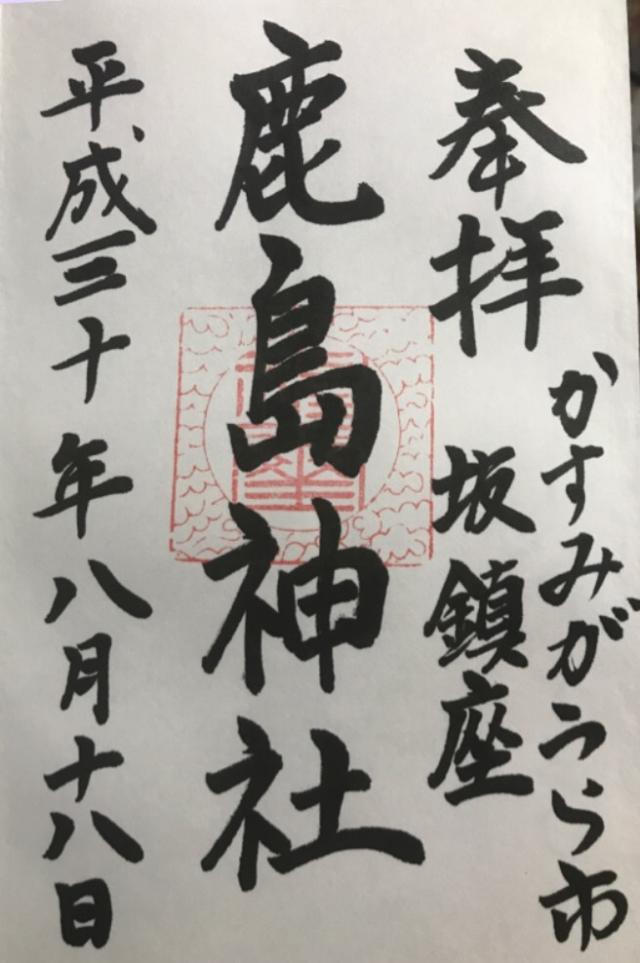 奉拝
かすみがうら市
坂鎮座
鹿島神社
平成三十年八月十八日